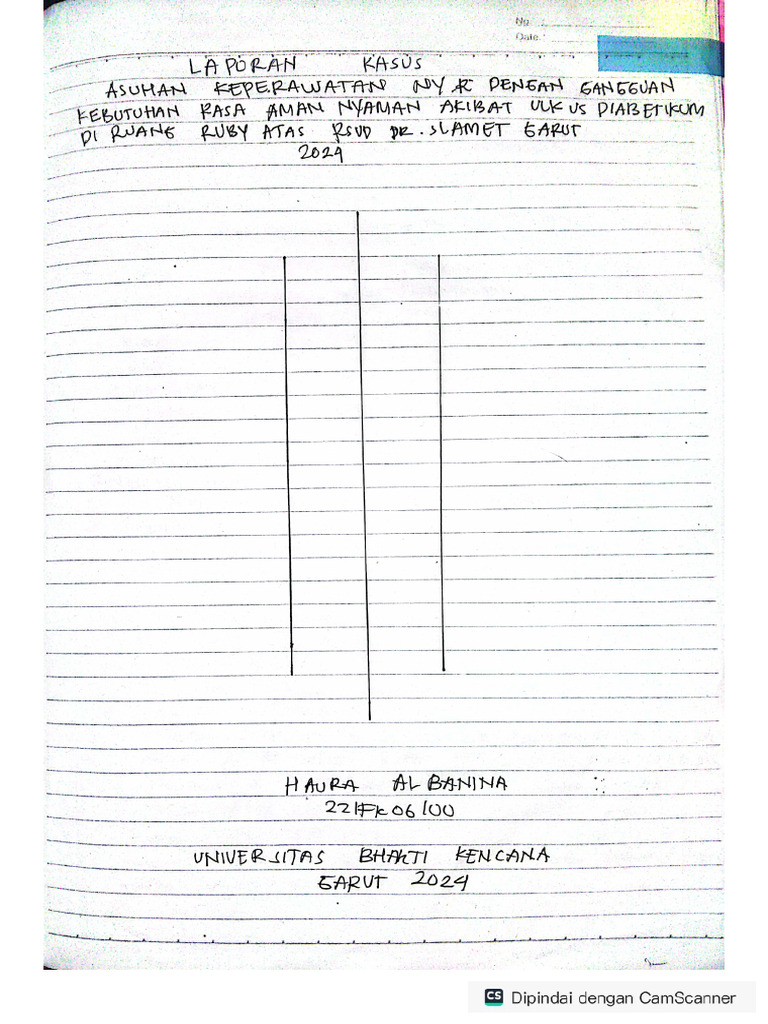 No :
Date :
LAPORAN KASUS
ASUHAN KEPERAWATAN NY DENGAN GANGGUAN
KEBUTUHAN RASA AMAN NYAMAN AKIBAT ULKUS DIABETIKUM
DI RUANG RUBY ATAS RSUD DR. SLAMET GARUT
2024
HAURA ALBANINA
221FK06100
UNIVERSITAS BHAKTI KENCANA
GARUT 2024
CS Dipindai dengan CamScanner